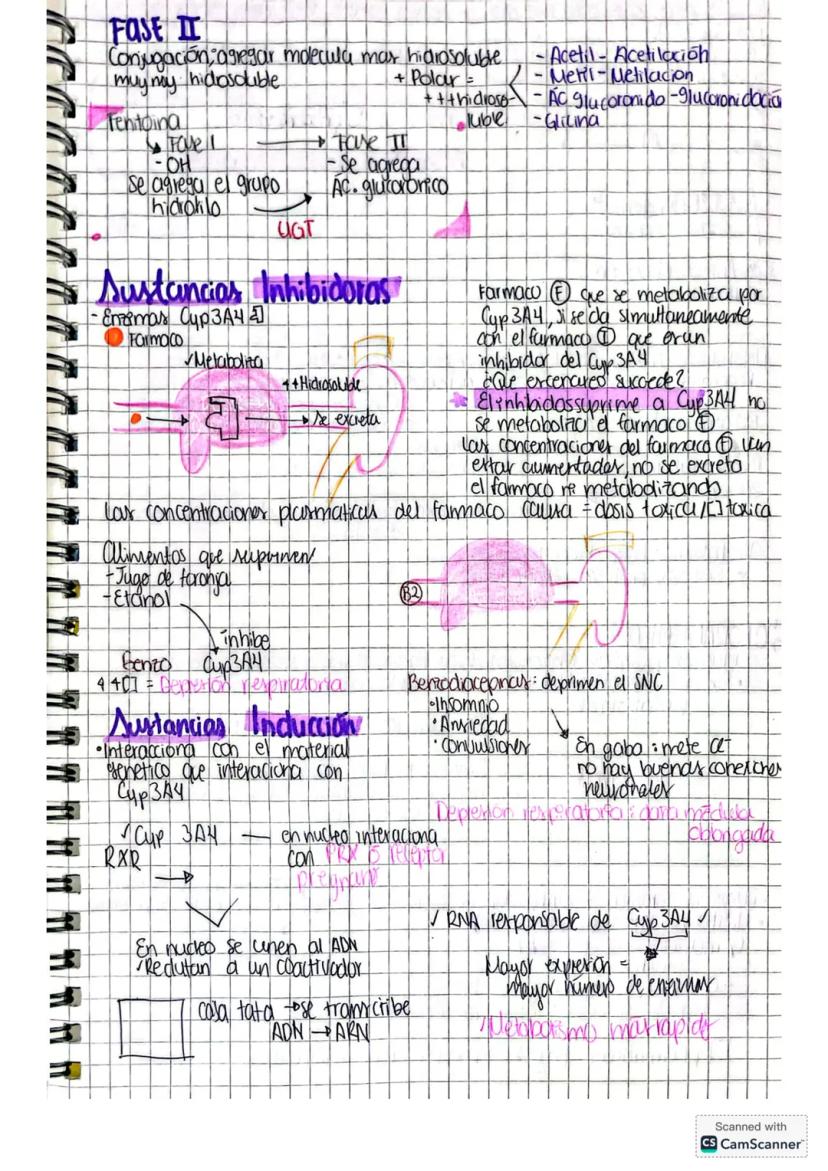 FASE II
Conjugación; agregar molecula mas hidrosoluble
muy muy hidrosoluble
+ Polar =
+++hidroso-
luble
- Acetil - Acetilación
- Metil - Metilacion
- Ac glucoronido - glucoronidación
- Glicina
Fenitoina
↳ Fase I → Fase II
- OH
Se agrega el grupo
hidrofilo
- Se agrega
Ac. glucoronico
UGT
Sustancias Inhibidoras
- Enzimas Cyp3A4
Farmaco
✓Metabolita
++Hidrosoluble
→ Se excreta
Farmaco Ⓔ que se metaboliza por
Cyp3A4, si se da simultaneamente
con el farmaco Ⓘ que era un
inhibidor del Cyp3A4
¿Que escenareo sucede?
* El inhbidos suprime a Cyp3A4 no
se metaboliza el farmaco Ⓔ
Las concentraciones del farmaco Ⓔ van
estar aumentadas, no se excreta
el farmaco metabolizando
Las concentraciones plasmaticas del farmaco causa = dosis toxica/[] toxica
Alimentos que suprimen
- Jugo de toronja
- Etanol
inhibe
Benzo Cyp3A4
++[] = Depersión respiratoria
B2
Benzodiacepinas: deprimen el SNC
• Insomnio
• Ansiedad
• Convulsiones
En gaba: mete Cl-
no hay buenas conexiones
neuronales
Depersion respiratoria: dara médula
oblongada
Sustancias Inducción
• Interacciona con el material
genetico que interaciona con
Cyp3A4
✓Cyp 3A4 — en nucleo interaciona
RXR
con PRX ó recepta
pregnano
En nucleo se unen al ADN
✓Reclutan a un coactivador
caja tata → se transcribe
ADN → ARN
✓ RNA responsable de Cyp3A4 ✓
Mayor expresion =
mayor número de enzimas
✓Metabolismo mas rapido
Scanned with
CS CamScanner